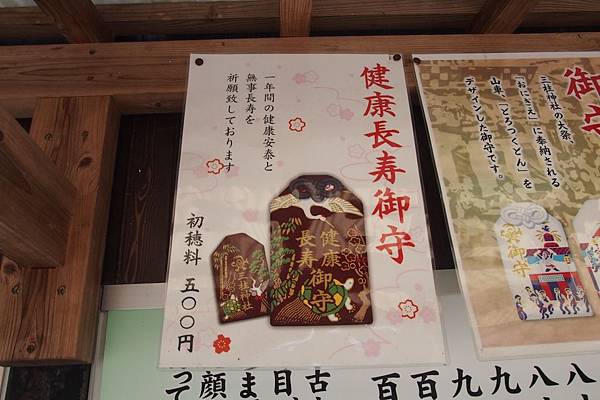 健康長寿御守
一年間の健康安泰と
無事長寿を
祈願致しております
初穂料 五〇〇円
健康
長寿御守
御守
三柱神社の大祭、
「おにぎえ」に奉納される
山車、「どろつくどん」を
デザインした御守です。
御守
八
八
九
九
百
百
古
目
ま
顔
って